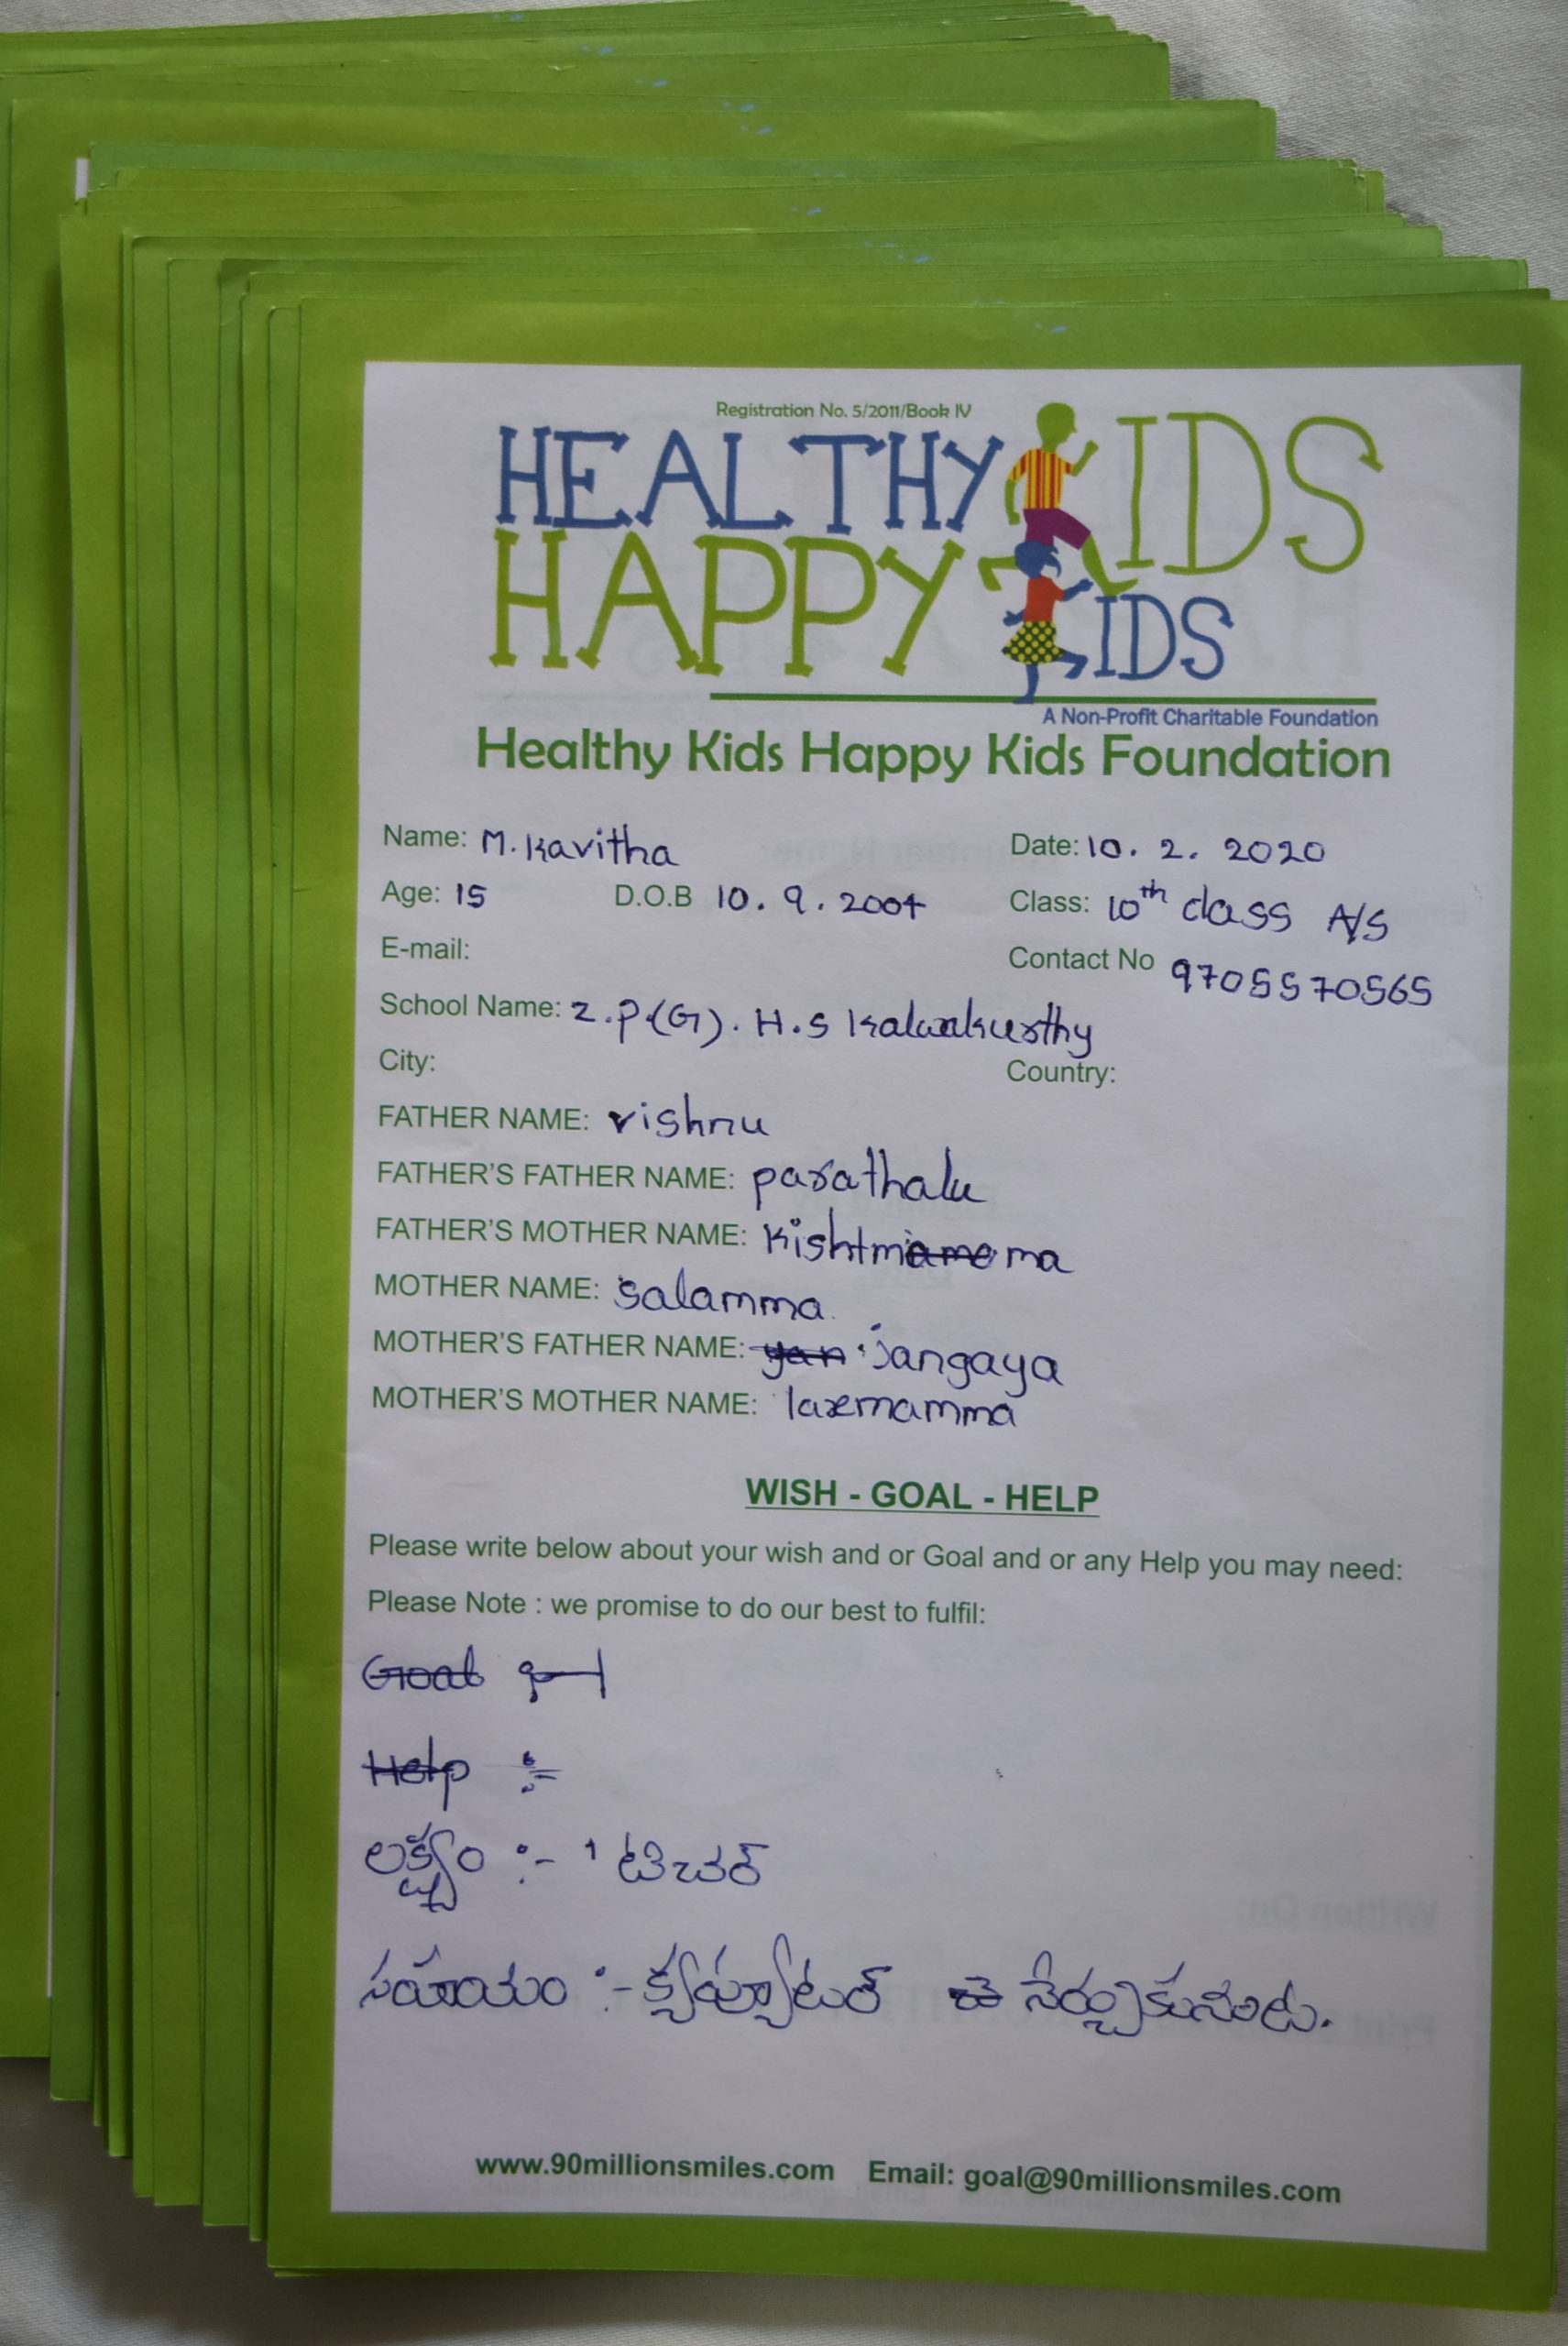 Registration No. 5/2011/Book IV
HEALTHY KIDS
HAPPY KIDS
A Non-Profit Charitable Foundation
Healthy Kids Happy Kids Foundation
Name: M. Kavitha Date: 10. 2. 2020
Age: 15 D.O.B 10. 9. 2004 Class: 10th class A/S
E-mail: Contact No 9705570565
School Name: Z.P.(G). H.S Kalwakurthy
City: Country:
FATHER NAME: vishnu
FATHER'S FATHER NAME: parathalu
FATHER'S MOTHER NAME: Kishtmama
MOTHER NAME: Salamma
MOTHER'S FATHER NAME: yan jangaya
MOTHER'S MOTHER NAME: laxmamma
WISH - GOAL - HELP
Please write below about your wish and or Goal and or any Help you may need:
Please Note : we promise to do our best to fulfil:
Goal
Help :-
లక్ష్యం :- టిచర్
సహాయం :- క్యప్యూటర్ నేర్చుకునుట.
www.90millionsmiles.com Email: goal@90millionsmiles.com